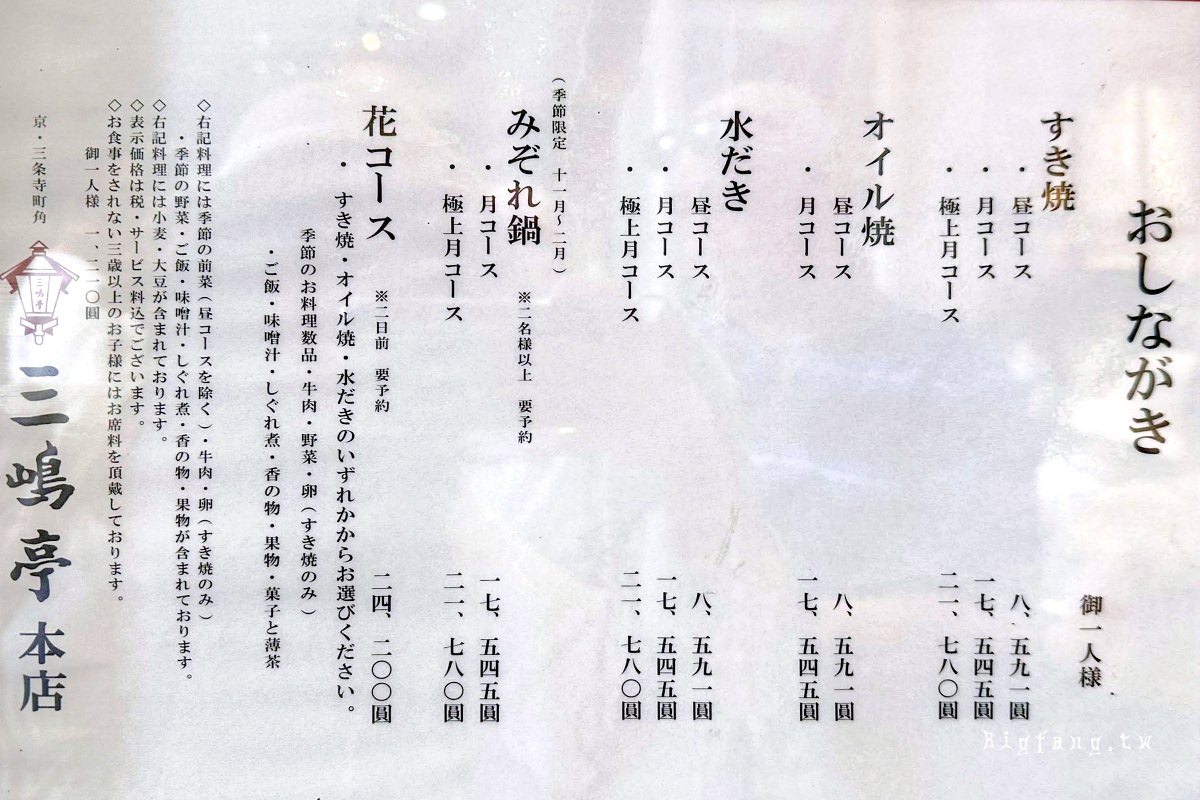 おしながき
御一人様
すき焼
・昼コース 八、五九一圓
・月コース 一七、五四五圓
・極上月コース 二一、七八〇圓
オイル焼
昼コース 八、五九一圓
・月コース 一七、五四五圓
水だき
昼コース 八、五九一圓
・月コース 一七、五四五圓
・極上月コース 二一、七八〇圓
(季節限定 十一月〜二月)
みぞれ鍋 ※二名様以上 要予約
・月コース 一七、五四五圓
・極上月コース 二一、七八〇圓
花コース ※二日前 要予約 二四、二〇〇圓
・すき焼・オイル焼・水だきのいずれかからお選びください。
季節のお料理数品・牛肉・野菜・卵(すき焼のみ)
・ご飯・味噌汁・しぐれ煮・香の物・果物・菓子と薄茶
◇右記料理には季節の前菜(昼コースを除く)・牛肉・卵(すき焼のみ)
・季節の野菜・ご飯・味噌汁・しぐれ煮・香の物・果物が含まれております。
◇右記料理には小麦・大豆が含まれております。
◇表示価格は税・サービス料込でございます。
◇お食事をされない三歳以上のお子様にはお席料を頂戴しております。
御一人様 一、二一〇圓
京・三条寺町角
三嶋亭
三嶋亭 本店
Bigfang.tw